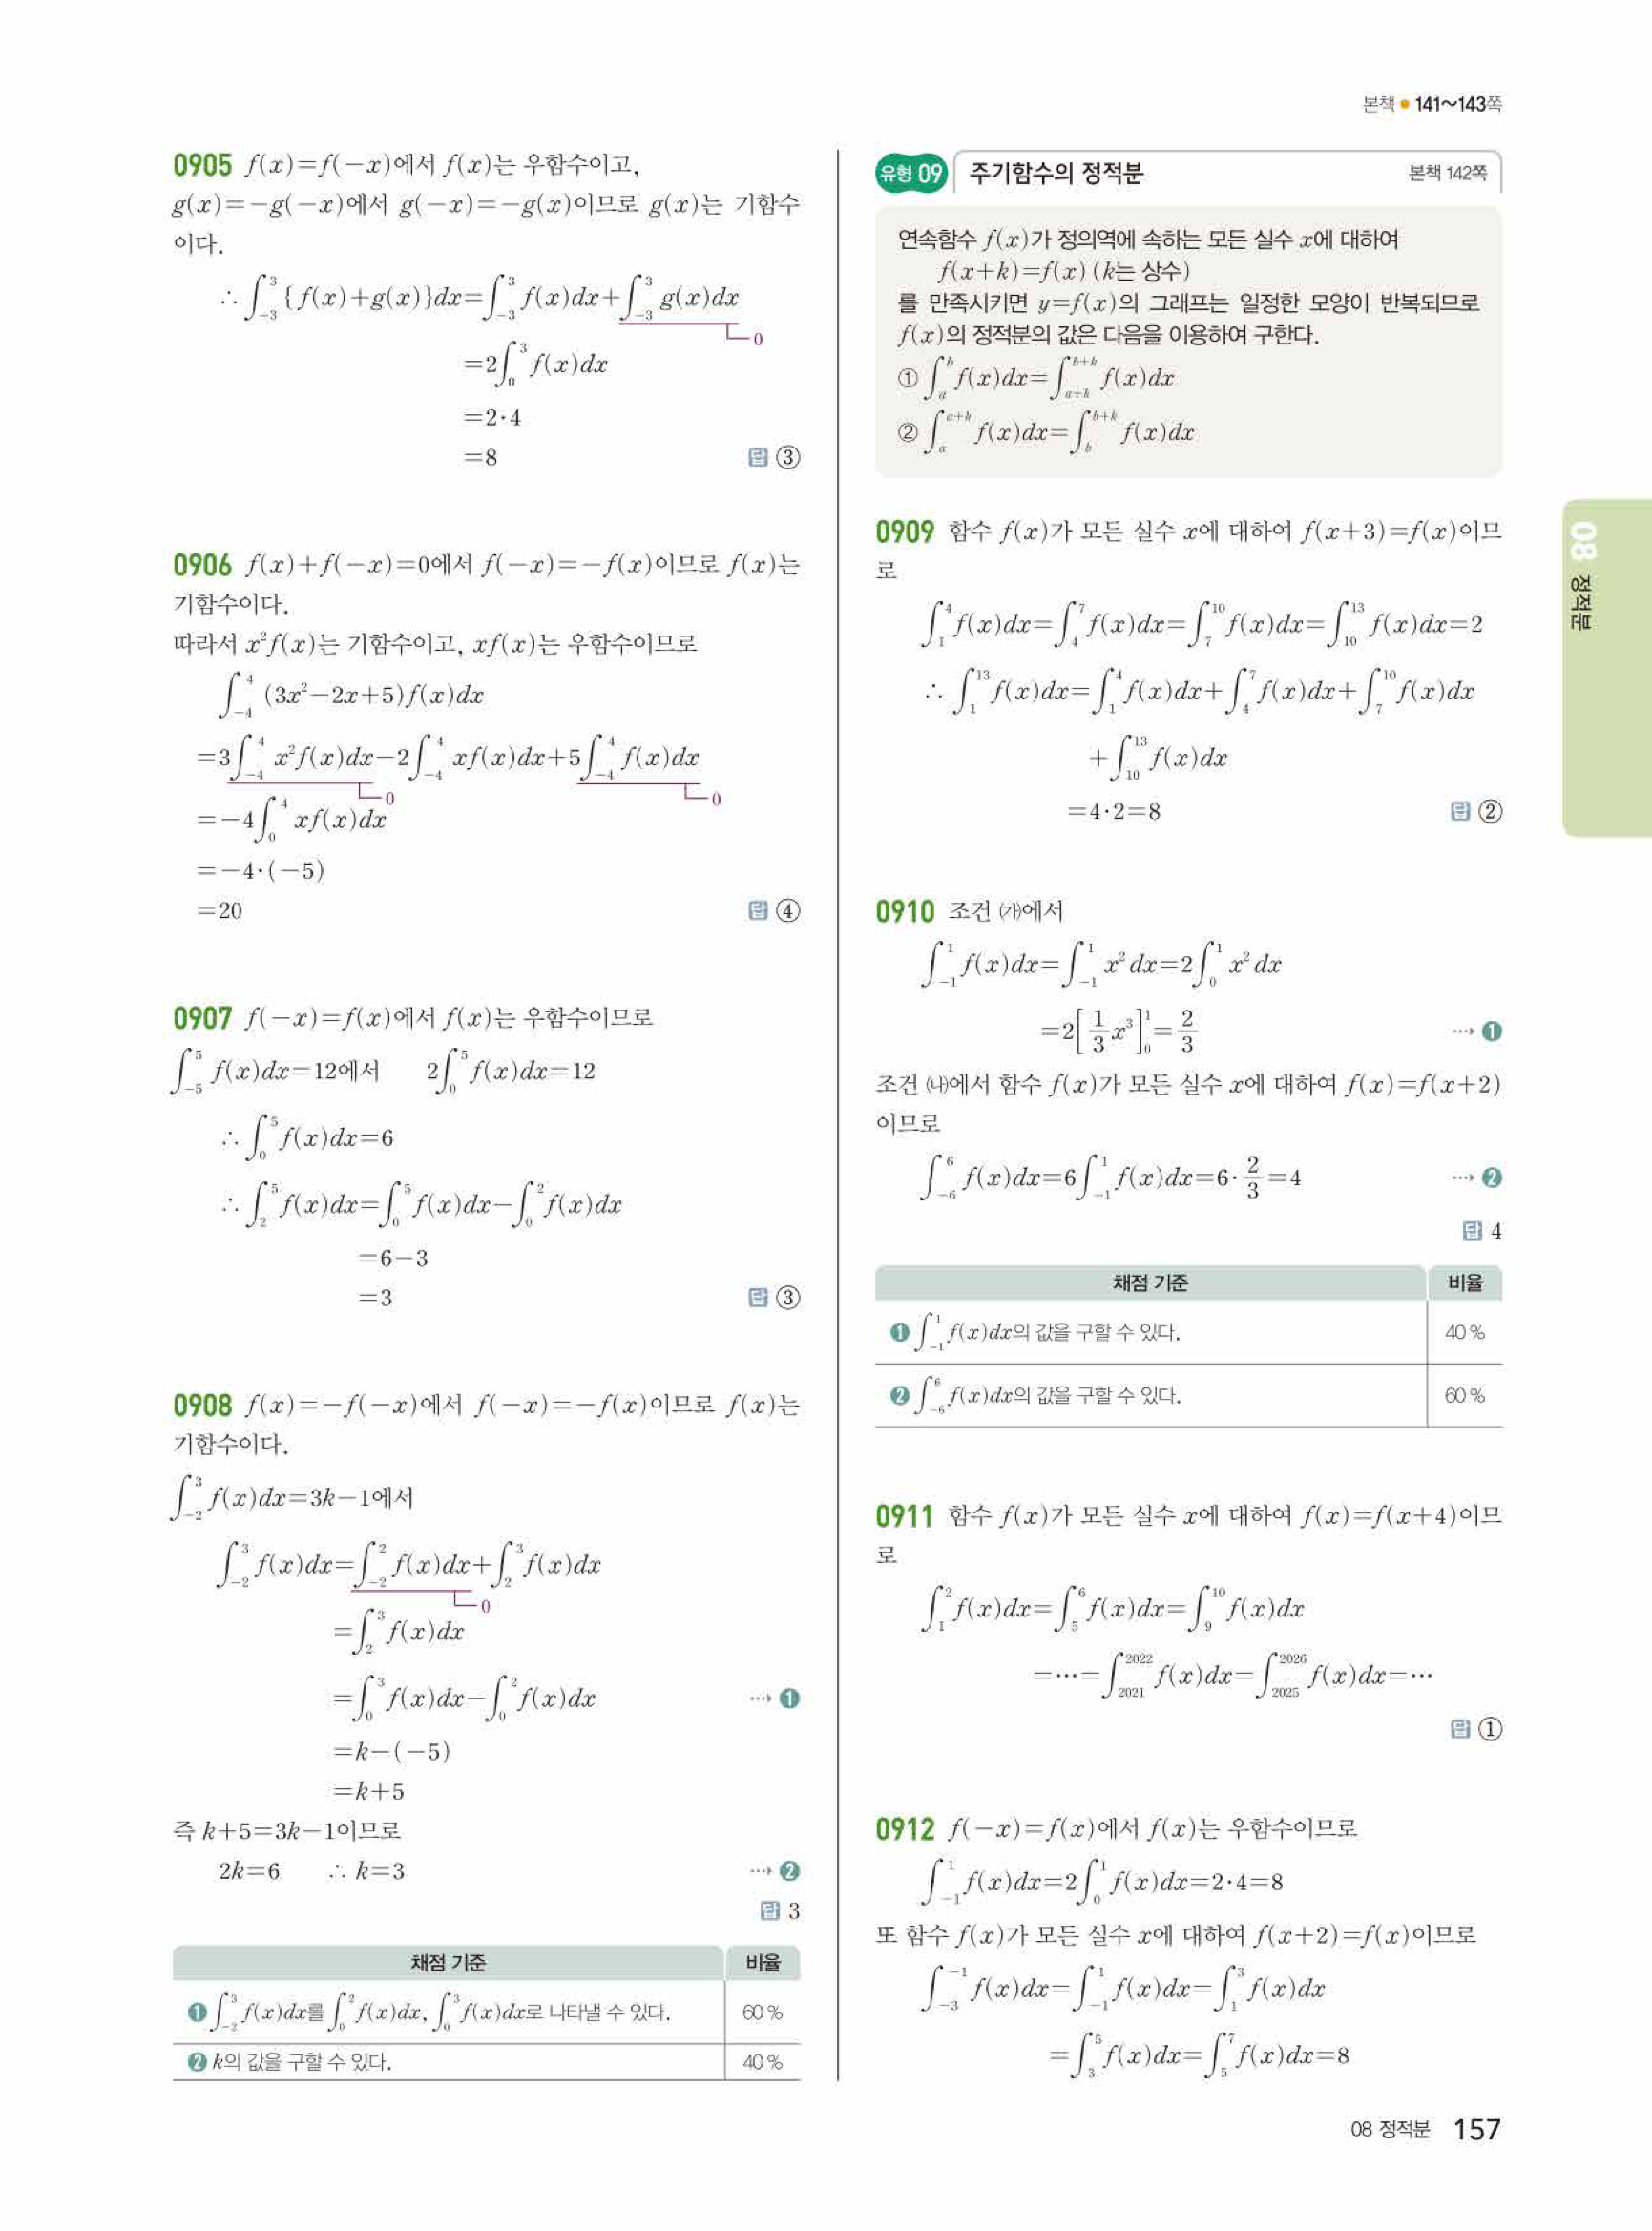 본책 ● 141~143쪽
0905 f(x)=f(-x)에서 f(x)는 우함수이고,
g(x)=-g(-x)에서 g(-x)=-g(x)이므로 g(x)는 기함수
이다.
∴ ∫_{-3}^{3} {f(x)+g(x)}dx=∫_{-3}^{3} f(x)dx+∫_{-3}^{3} g(x)dx
0
=2∫_{0}^{3} f(x)dx
=2·4
=8 답 ③
0906 f(x)+f(-x)=0에서 f(-x)=-f(x)이므로 f(x)는
기함수이다.
따라서 x²f(x)는 기함수이고, xf(x)는 우함수이므로
∫_{-4}^{4} (3x²-2x+5)f(x)dx
=3∫_{-4}^{4} x²f(x)dx-2∫_{-4}^{4} xf(x)dx+5∫_{-4}^{4} f(x)dx
0 0
=-4∫_{0}^{4} xf(x)dx
=-4·(-5)
=20 답 ④
0907 f(-x)=f(x)에서 f(x)는 우함수이므로
∫_{-5}^{5} f(x)dx=12에서 2∫_{0}^{5} f(x)dx=12
∴ ∫_{0}^{5} f(x)dx=6
∴ ∫_{2}^{5} f(x)dx=∫_{0}^{5} f(x)dx-∫_{0}^{2} f(x)dx
=6-3
=3 답 ③
0908 f(x)=-f(-x)에서 f(-x)=-f(x)이므로 f(x)는
기함수이다.
∫_{-2}^{3} f(x)dx=3k-1에서
∫_{-2}^{3} f(x)dx=∫_{-2}^{2} f(x)dx+∫_{2}^{3} f(x)dx
0
=∫_{2}^{3} f(x)dx
=∫_{0}^{3} f(x)dx-∫_{0}^{2} f(x)dx ···→ ❶
=k-(-5)
=k+5
즉 k+5=3k-1이므로
2k=6 ∴ k=3 ···→ ❷
답 3
채점 기준 비율
❶ ∫_{-2}^{3} f(x)dx를 ∫_{0}^{2} f(x)dx, ∫_{0}^{3} f(x)dx로 나타낼 수 있다. 60 %
❷ k의 값을 구할 수 있다. 40 %
유형 09 주기함수의 정적분 본책 142쪽
연속함수 f(x)가 정의역에 속하는 모든 실수 x에 대하여
f(x+k)=f(x) (k는 상수)
를 만족시키면 y=f(x)의 그래프는 일정한 모양이 반복되므로
f(x)의 정적분의 값은 다음을 이용하여 구한다.
① ∫_{a}^{b} f(x)dx=∫_{a+k}^{b+k} f(x)dx
② ∫_{a}^{a+k} f(x)dx=∫_{b}^{b+k} f(x)dx
0909 함수 f(x)가 모든 실수 x에 대하여 f(x+3)=f(x)이므
로
∫_{1}^{4} f(x)dx=∫_{4}^{7} f(x)dx=∫_{7}^{10} f(x)dx=∫_{10}^{13} f(x)dx=2
∴ ∫_{1}^{13} f(x)dx=∫_{1}^{4} f(x)dx+∫_{4}^{7} f(x)dx+∫_{7}^{10} f(x)dx
+∫_{10}^{13} f(x)dx
=4·2=8 답 ②
0910 조건 ㈎에서
∫_{-1}^{1} f(x)dx=∫_{-1}^{1} x² dx=2∫_{0}^{1} x² dx
=2[1/3 x³]_{0}^{1}=2/3 ···→ ❶
조건 ㈏에서 함수 f(x)가 모든 실수 x에 대하여 f(x)=f(x+2)
이므로
∫_{-6}^{6} f(x)dx=6∫_{-1}^{1} f(x)dx=6·2/3=4 ···→ ❷
답 4
채점 기준 비율
❶ ∫_{-1}^{1} f(x)dx의 값을 구할 수 있다. 40 %
❷ ∫_{-6}^{6} f(x)dx의 값을 구할 수 있다. 60 %
0911 함수 f(x)가 모든 실수 x에 대하여 f(x)=f(x+4)이므
로
∫_{1}^{2} f(x)dx=∫_{5}^{6} f(x)dx=∫_{9}^{10} f(x)dx
=···=∫_{2021}^{2022} f(x)dx=∫_{2025}^{2026} f(x)dx=···
답 ①
0912 f(-x)=f(x)에서 f(x)는 우함수이므로
∫_{-1}^{1} f(x)dx=2∫_{0}^{1} f(x)dx=2·4=8
또 함수 f(x)가 모든 실수 x에 대하여 f(x+2)=f(x)이므로
∫_{-3}^{-1} f(x)dx=∫_{-1}^{1} f(x)dx=∫_{1}^{3} f(x)dx
=∫_{3}^{5} f(x)dx=∫_{5}^{7} f(x)dx=8
08 정적분
08 정적분 157